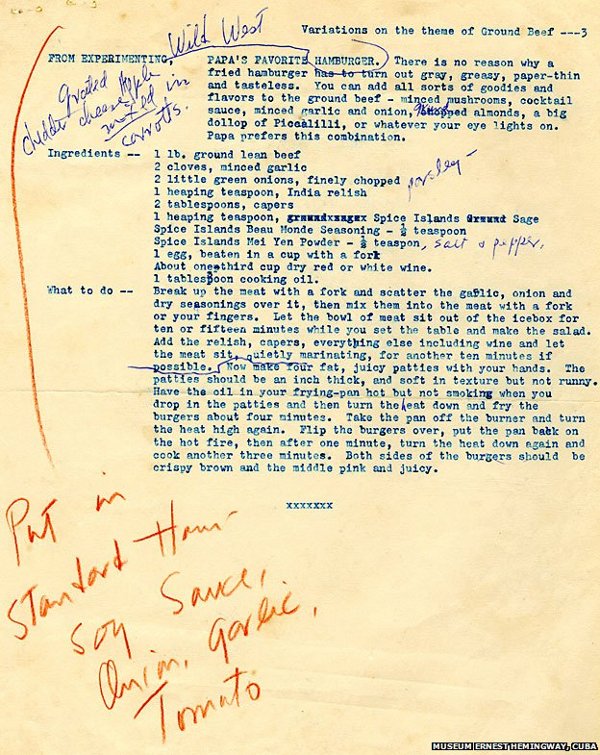 Variations on the theme of Ground Beef ---3
Wild West
FROM EXPERIMENTING, PAPA'S FAVORITE HAMBURGER. There is no reason why a
fried hamburger has to turn out gray, greasy, paper-thin
and tasteless. You can add all sorts of goodies and
flavors to the ground beef - minced mushrooms, cocktail
sauce, minced garlic and onion, chopped almonds, a big
dollop of Piccalilli, or whatever your eye lights on.
Papa prefers this combination.
grated Apple
chedder cheese
in
carrots.
Ingredients -- 1 lb. ground lean beef
2 cloves, minced garlic
2 little green onions, finely chopped parsley -
1 heaping teaspoon, India relish
2 tablespoons, capers
1 heaping teaspoon, Spice Islands Sage
Spice Islands Beau Monde Seasoning - ½ teaspoon
Spice Islands Mei Yen Powder - ½ teaspon, salt & pepper.
1 egg, beaten in a cup with a fork
About one third cup dry red or white wine.
1 tablespoon cooking oil.
What to do -- Break up the meat with a fork and scatter the garlic, onion and
dry seasonings over it, then mix them into the meat with a fork
or your fingers. Let the bowl of meat sit out of the icebox for
ten or fifteen minutes while you set the table and make the salad.
Add the relish, capers, everything else including wine and let
the meat sit, quietly marinating, for another ten minutes if
possible. Now make four fat, juicy patties with your hands. The
patties should be an inch thick, and soft in texture but not runny.
Have the oil in your frying-pan hot but not smoking when you
drop in the patties and then turn the heat down and fry the
burgers about four minutes. Take the pan off the burner and turn
the heat high again. Flip the burgers over, put the pan back on
the hot fire, then after one minute, turn the heat down again and
cook another three minutes. Both sides of the burgers should be
crispy brown and the middle pink and juicy.
xxxxxxx
Put in
Standard Ham-
Soy Sauce,
Onion, Garlic,
Tomato
MUSEUM ERNEST HEMINGWAY, CUBA